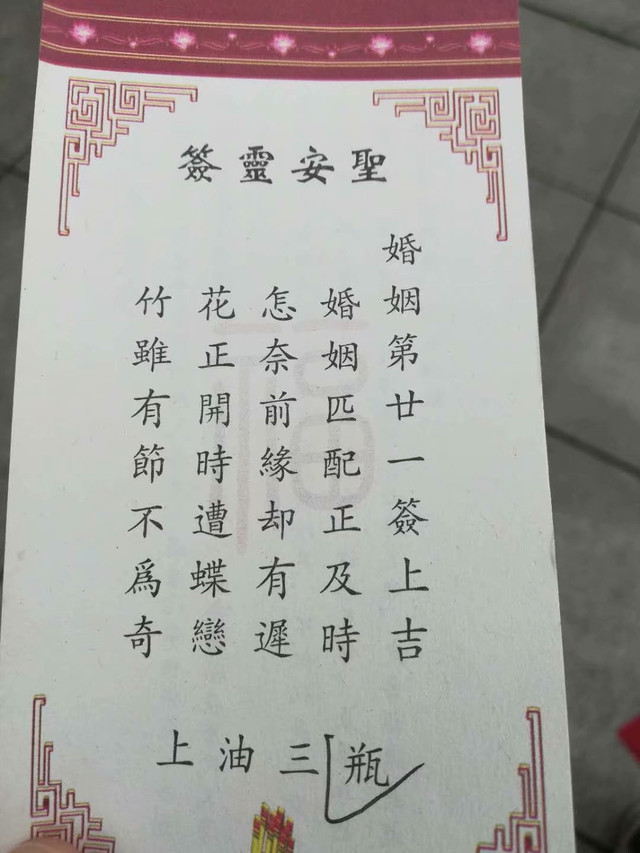 聖安靈簽
婚姻第廿一簽上吉
婚姻匹配正及時
怎奈前緣却有遲
花正開時遭蝶戀
竹雖有節不爲奇
上油三瓶